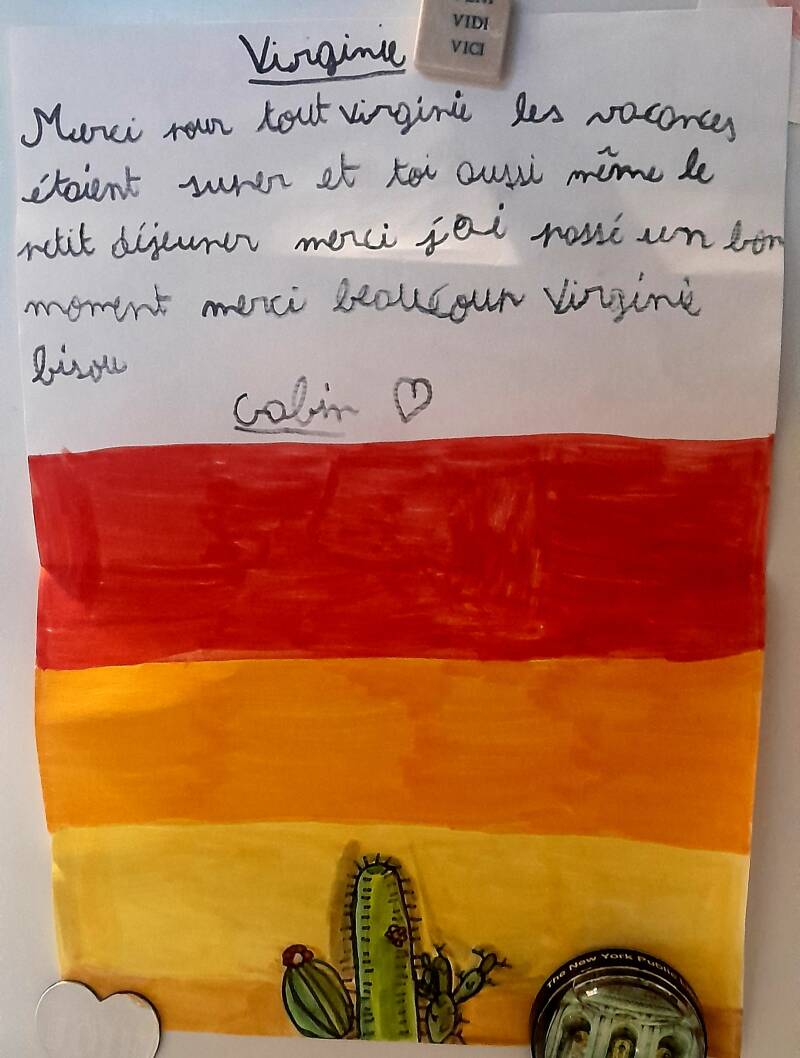 VENI
VIDI
VICI
Virginie
Merci pour tout virginie les vacances
étaient super et toi aussi même le
petit déjeuner merci j'ai passé un bon
moment merci beaucoup Virginie
bisou
Gabin
The New York Public